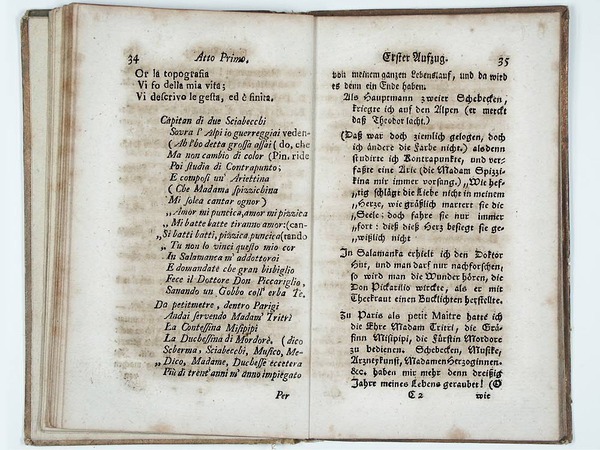 34 Atto Primo.
Or la topografia
Vi fo della mia vita;
Vi descrivo le gesta, ed è finita.
Capitan di due Sciabecchi
Sovra l' Alpi io guerreggiai veden-
( Ah l'ho detta grossa assai ( do, che
Ma non cambio di color (Pin. ride
Poi studia di Contrapunto;
E composi un' Ariettina
( Che Madama spizzichina
Mi solea cantar ognor )
„ Amor mi puncica, amor mi pizzica
„ Mi batte batte tiranno amor: (can-
„Si batti batti, pizzica puncica (tando
„ Tu non lo vinci questo mio cor
In Salamanca m' addottorai
E domandate che gran bisbiglio
Fece il Dottore Don Piccariglio,
Sanando un Gobbo coll' erba Te.
Da petitmetre, dentro Parigi
Andai servendo Madam' Tritri
La Contessina Misipipi
La Duchessina di Mordorè. ( dico
Scherma, Sciabecchi, Musico, Me-
„Dico, Madame, Duchesse eccetera
Più di trent' anni m' anno impiegato
Per
Erster Aufzug. 35
von meinem ganzen Lebenslauf, und da wird
es denn ein Ende haben.
Als Hauptmann zweier Schebecken,
kriegte ich auf den Alpen (er merckt
daß Theodor lacht.)
(Das war doch ziemlich gelogen, doch
ich ändere die Farbe nicht.) alsdenn
studirte ich Kontrapunkte, und ver-
faßte eine Arie (die Madam Spizzi-
kina mir immer vorsang.) „Wie hef-
„tig schlägt die Liebe nicht in meinem
„Herze, wie gräßlich martert sie die
„Seele; doch fahre sie nur immer
„fort: dieß dieß Herz besiegt sie ge-
„wißlich nicht
In Salamanka erhielt ich den Doktor
Hut, und man darf nur nachforschen,
so wird man die Wunder hören, die
Don Pickarilio wirckte, als er mit
Theekraut einen Bucklichten herstellte.
Zu Paris als petit Maitre hatte ich
die Ehre Madam Tritri, die Grä-
finn Misipipi, die Fürstin Mordore
zu bedienen. Schebecken, Musike,
Arzneykunst, Madamen Herzoginnen.
&c. haben mir mehr denn dreißig
Jahre meines Lebens geraubet! (O
C 2 wie